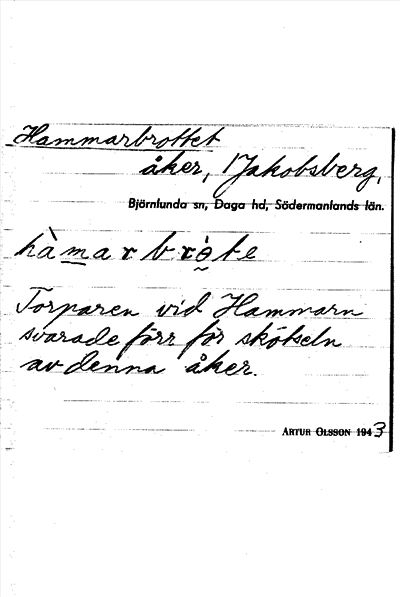 Hammarbrottet
åker, Jakobsberg,
Björnlunda sn, Daga hd, Södermanlands län.
hàmarbròte
Torparen vid Hammarn
svarade förr för skötseln
av denna åker.
ARTUR OLSSON 1943